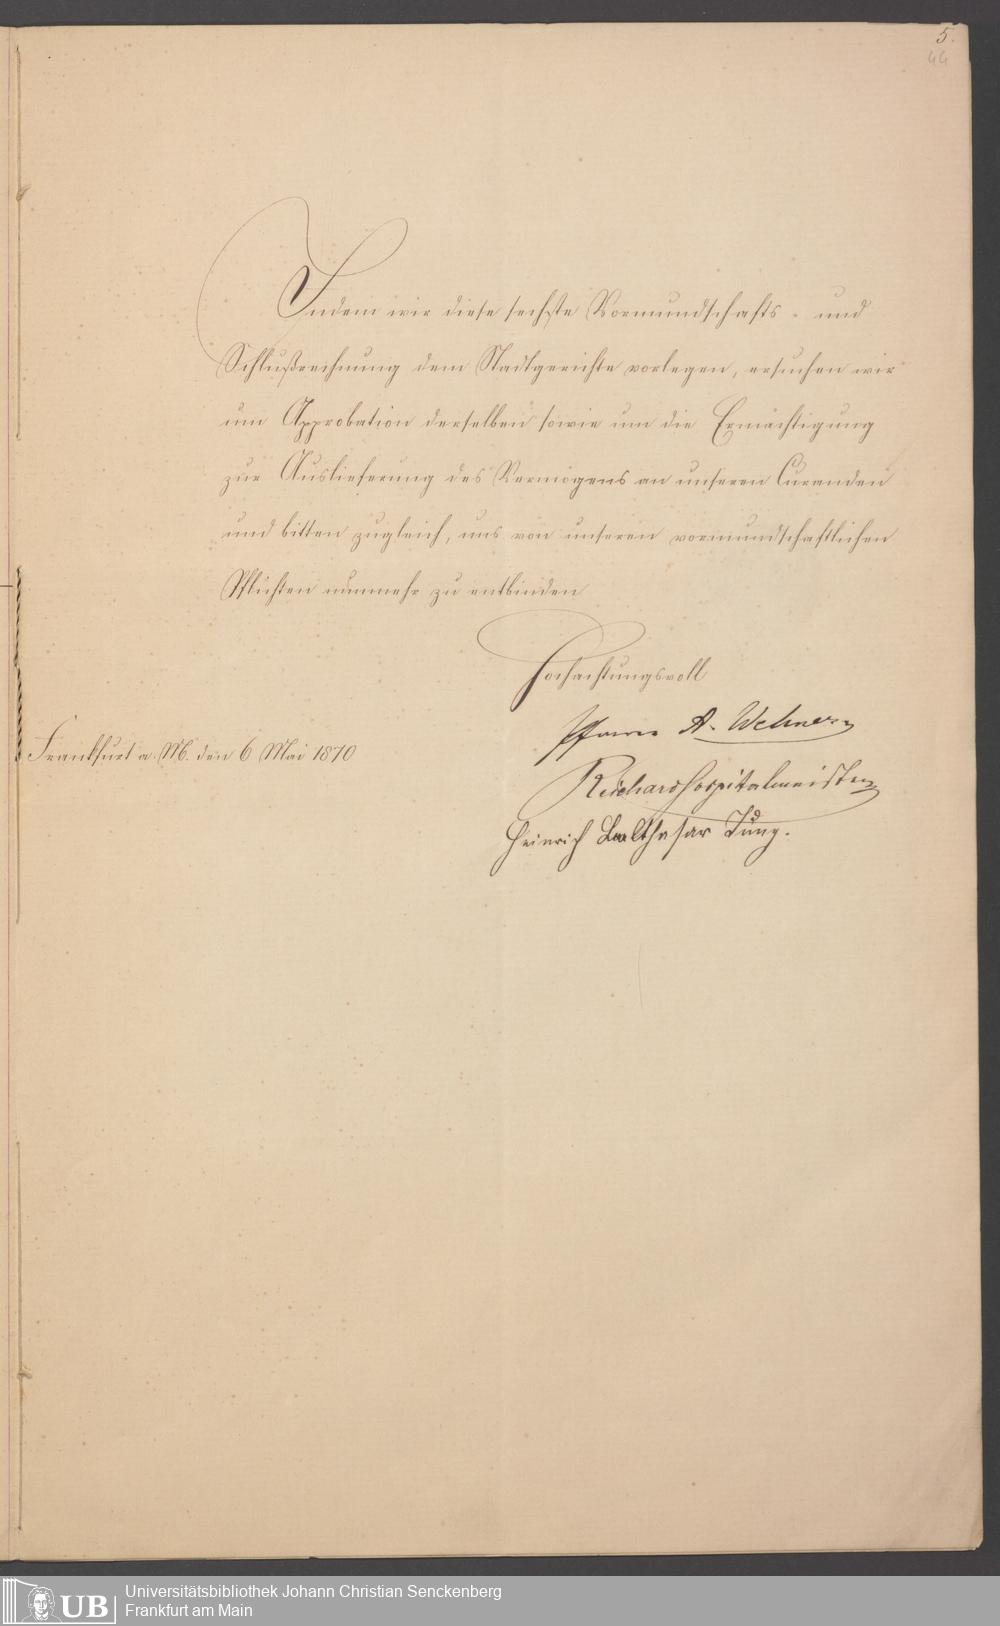 5.
44
Indem wir diese sechste Vormundschafts- und
Schlußrechnung dem Stadtgerichte vorlegen, ersuchen wir
um Approbation derselben sowie um die Ermächtigung
zur Auslieferung des Vermögens an unseren Curanden
und bitten zugleich, uns von unseren vormundschaftlichen
Pflichten nunmehr zu entbinden
Hochachtungsvoll
Pfarrer A. Wehner
Frankfurt a. M. den 6 Mai 1870
Reichard Hospitalmeister
Heinrich Balthasar Jung.
UB
Universitätsbibliothek Johann Christian Senckenberg
Frankfurt am Main